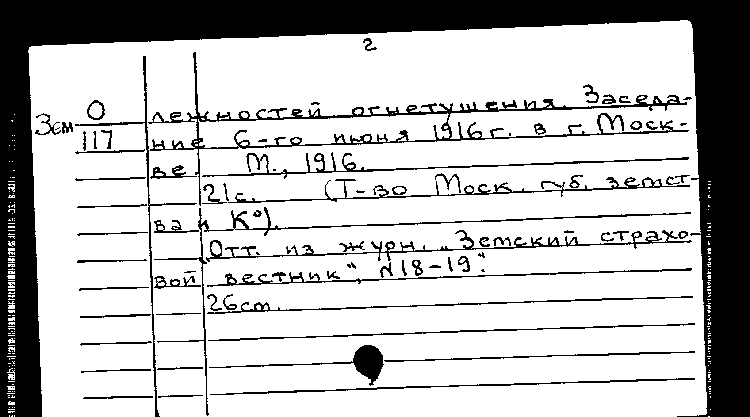 2
Зем О
117
лежностей огнетушения. Заседа-
ние 6-го июня 1916г. в г. Моск-
ве. М., 1916.
21с. (Т-во Моск. губ. земст-
ва и К°).
Отт. из журн. „Земский страхо-
вой вестник", N18-19".
26см.